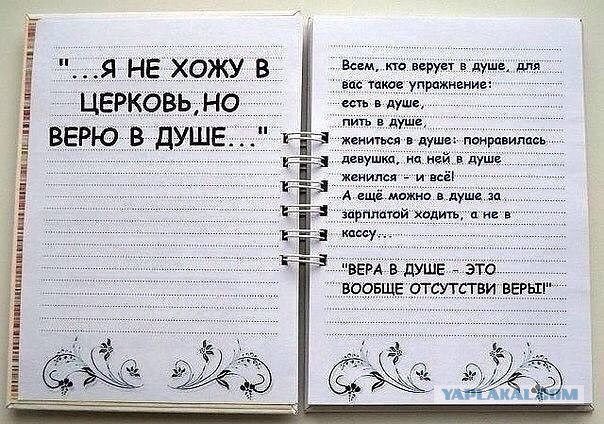 "...Я НЕ ХОЖУ В
ЦЕРКОВЬ,НО
ВЕРЮ В ДУШЕ..."
Всем, кто верует в душе, для
вас такое упражнение:
есть в душе,
пить в душе,
жениться в душе: понравилась
девушка, на ней в душе
женился - и всё!
А ещё можно в душе за
зарплатой ходить, а не в
кассу...
"ВЕРА В ДУШЕ - ЭТО
ВООБЩЕ ОТСУТСТВИ ВЕРЫ!"
YAPLAKAL.COM